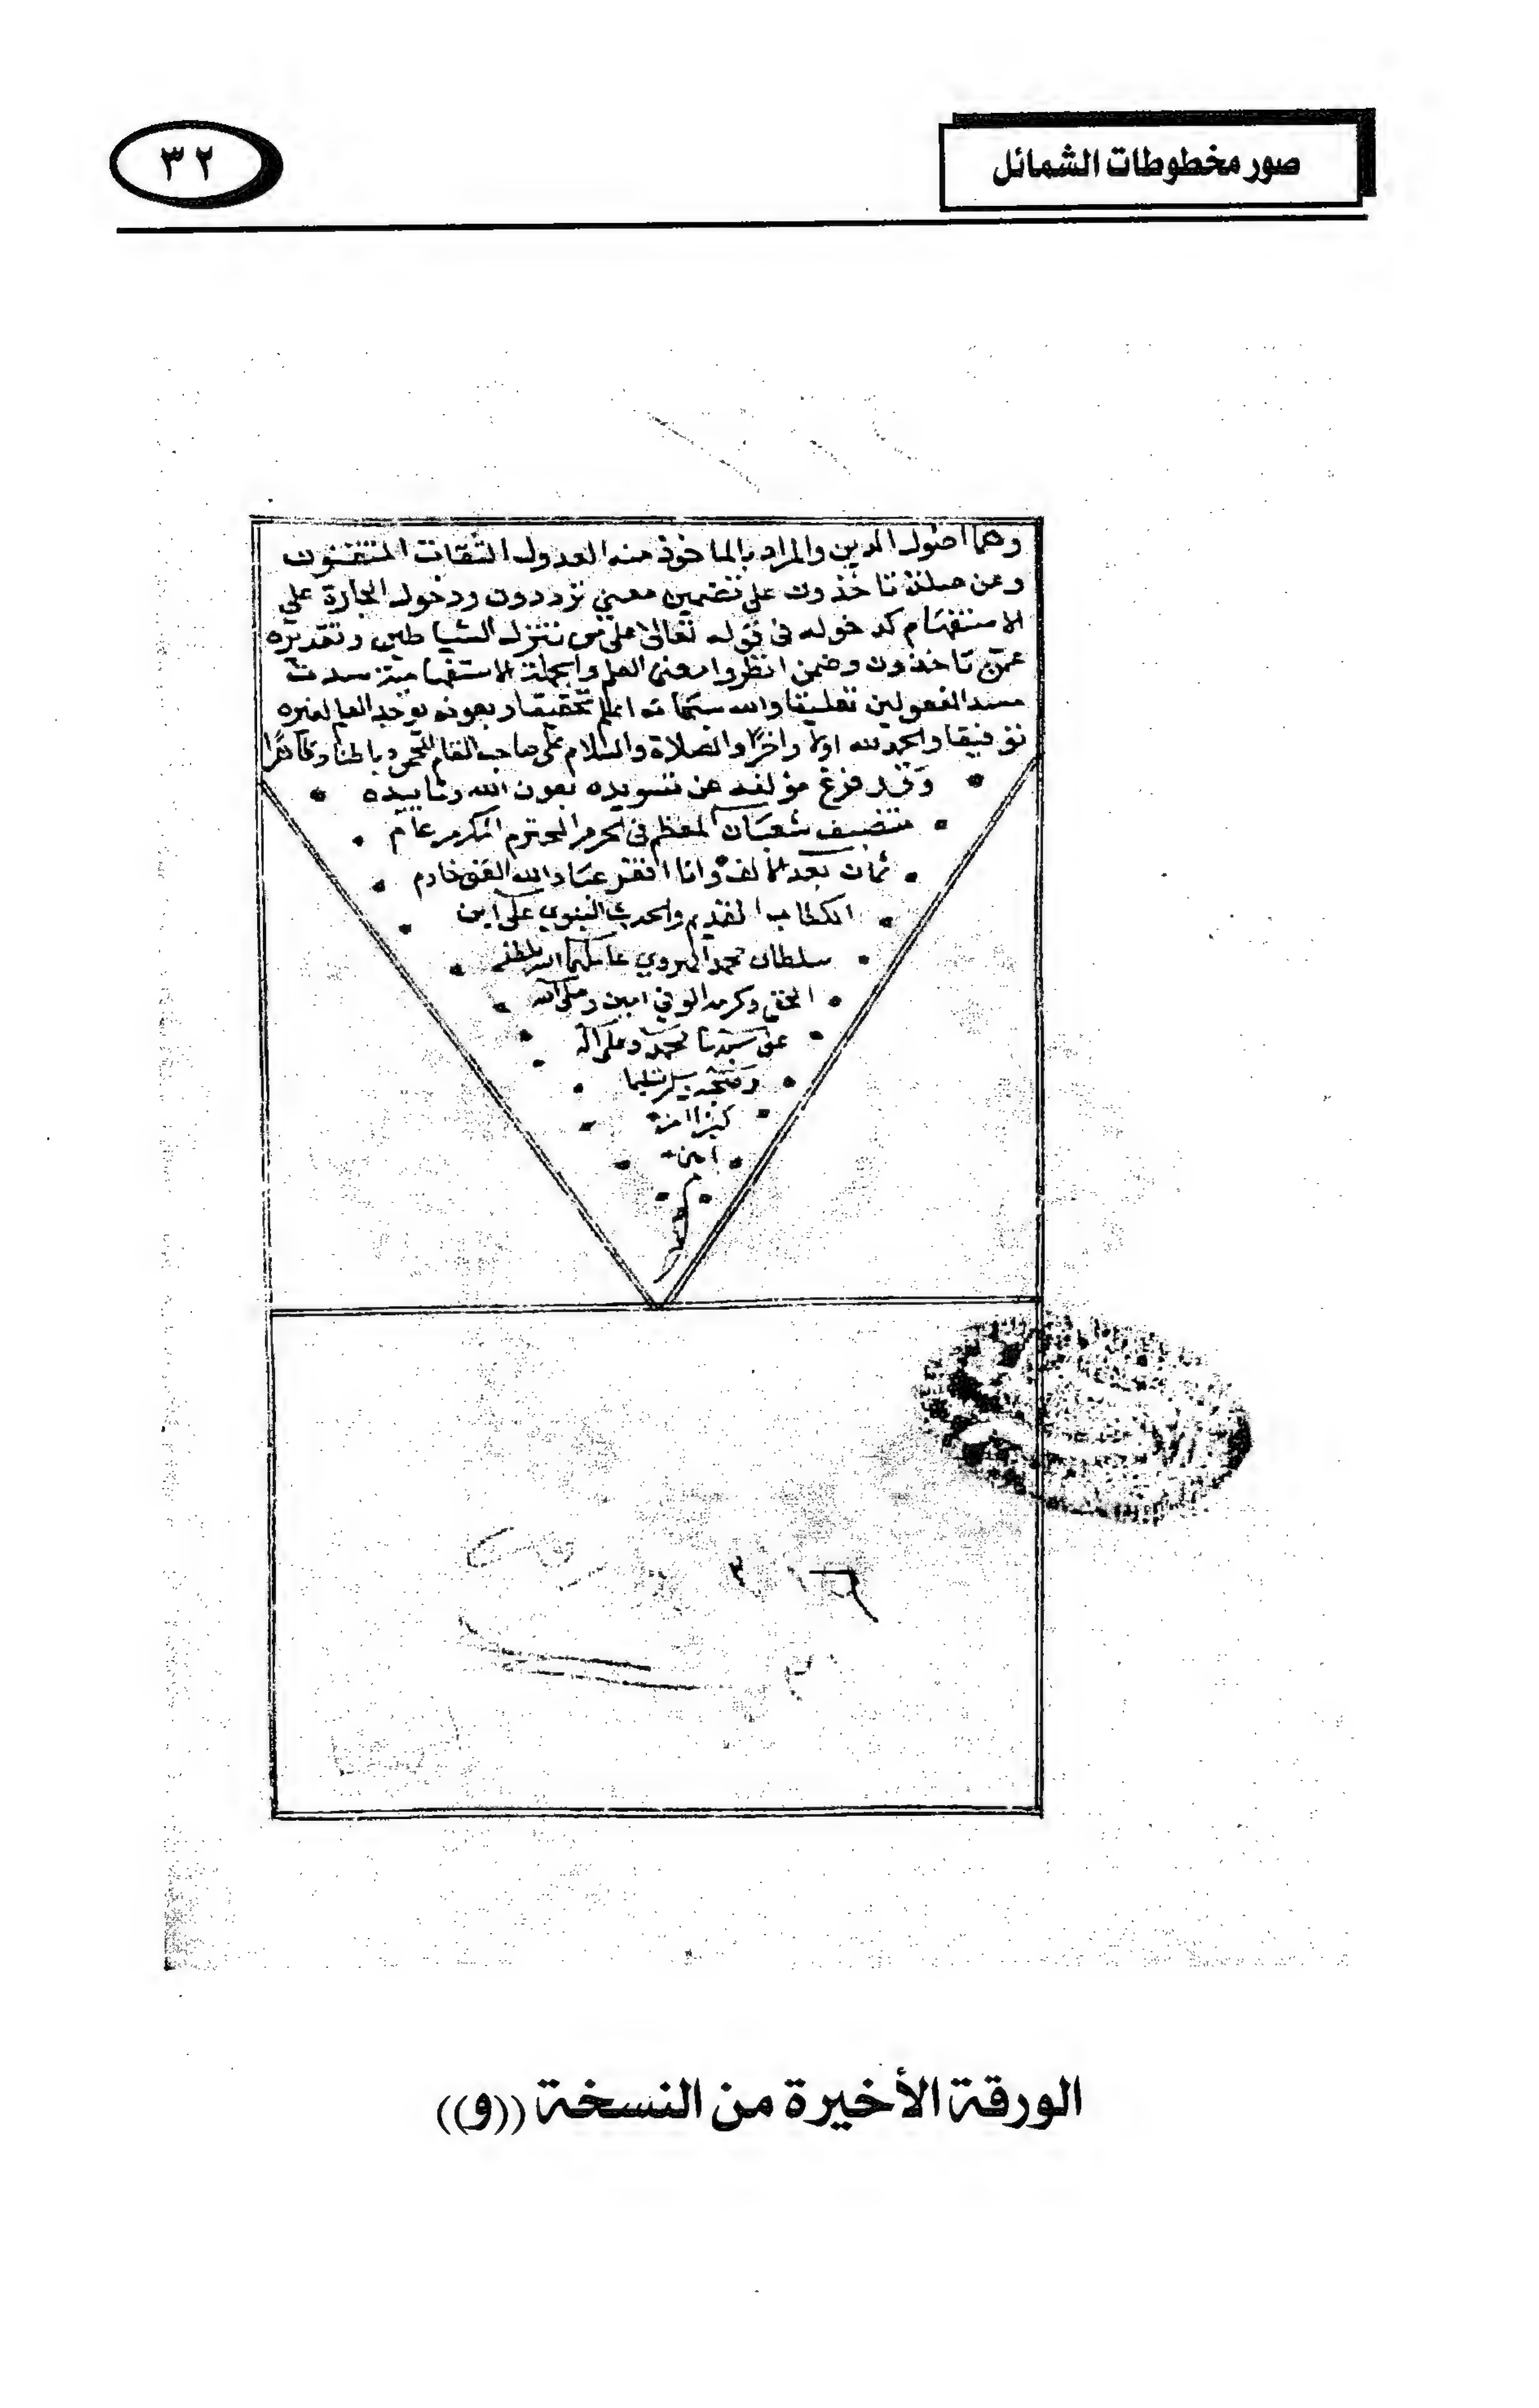 صور مخطوطات الشمائل
٣٢
وهما اصول الدين والمراد بالماخوذ منه العدول الثقات المتقنون
وعن صلة تاخذون على تضمين معنى تروون ودخول الجارة على
الاستفهام كدخوله في قوله تعالى على من تنزل الشياطين وتقديره
عمن تاخذون وضمن انظروا معنى العلم والجملة الاستفهامية سدت
مسد المفعولين تعليقا والله سبحانه اعلم تحقيقا وبعونه يوجد العالم لغيره
توفيقا والحمد لله اولا واخرا والصلاة والسلام على صاحب المقام المحمود باطنا وظاهرا
وقد فرغ مؤلفه عن تسويده بعون الله وتاييده
منتصف شعبان المعظم في الحرم المحترم المكرم عام
ثمان بعد الالف وانا افقر عباد الله الغني خادم
الكتاب القديم والحديث النبوي على ابن
سلطان محمد الهروي عاملهما الله بلطفه
الخفي وكرمه الوفي امين وصلى الله
على سيدنا محمد وعلى اله
وصحبه وسلم تسليما
كثيرا
امين
الورقة الأخيرة من النسخة ((و))